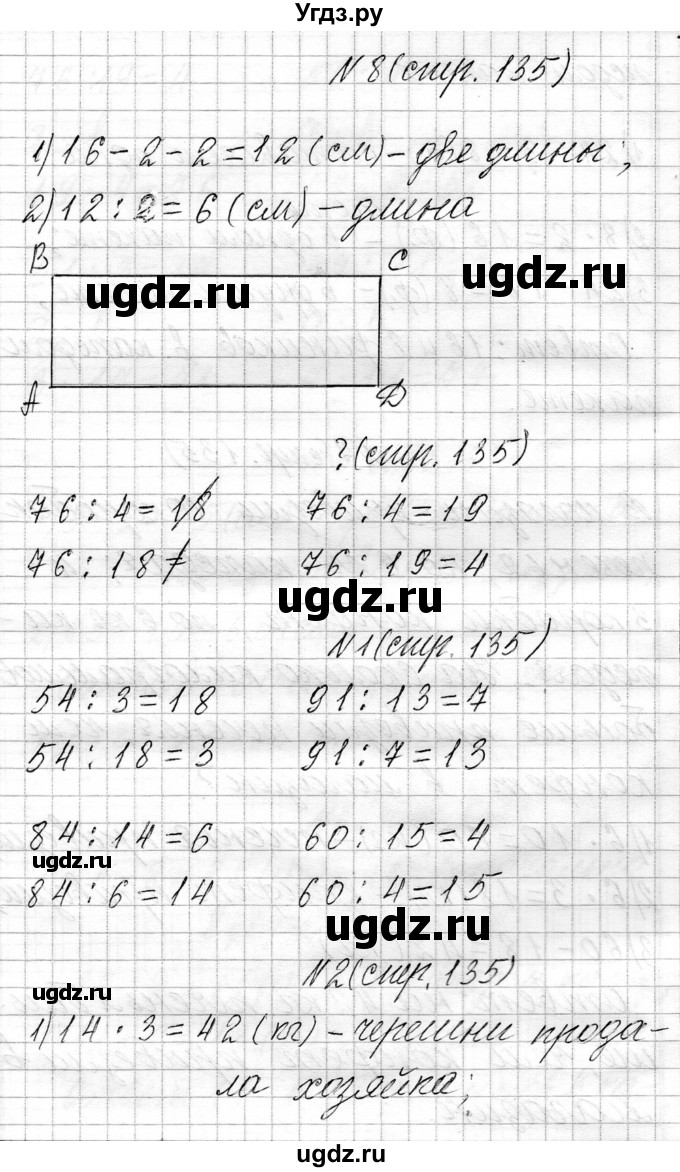 Угдз.ру
N 8 (стр. 135)
1) 16 - 2 - 2 = 12 (см) - две длины;
2) 12 : 2 = 6 (см) - длина
B C
ugdz.ru ugdz.ru
A D
? (стр. 135)
76 : 4 = 18 76 : 4 = 19
76 : 18 ≠ 76 : 19 = 4
ugdz.ru
N1 (стр. 135)
54 : 3 = 18 91 : 13 = 7
54 : 18 = 3 91 : 7 = 13
84 : 14 = 6 60 : 15 = 4
ugdz.ru
84 : 6 = 14 60 : 4 = 15
ugdz.ru
N2 (стр. 135)
ugdz.ru
1) 14 · 3 = 42 (кг) - черешни прода-
ла хозяйка;
ugdz.ru